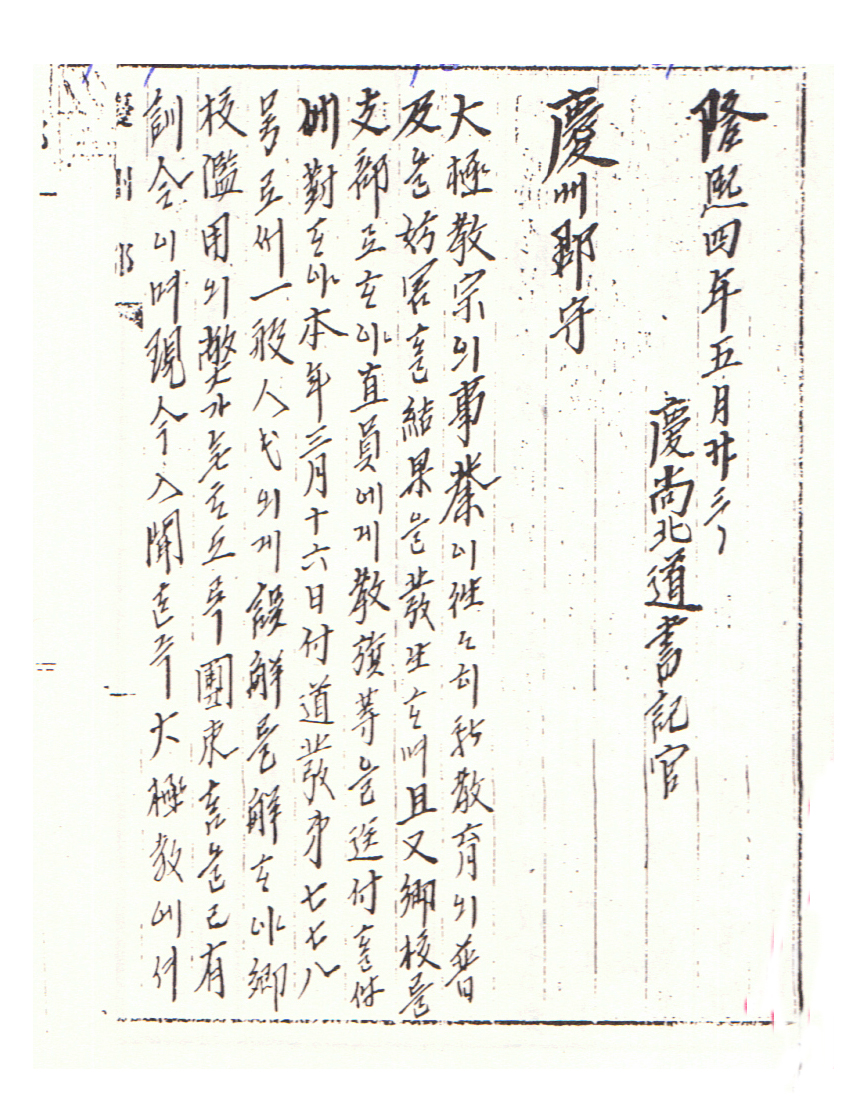 隆熙四年五月廿三日
慶尙北道書記官
慶州郡守
大極敎宗의事業이往々히新敎育의普
及을妨害홀結果을發生ᄒᆞ며且又鄕校를
支部로ᄒᆞ야直員에게敎旗等을送付ᄒᆞᆫ件
에對ᄒᆞ야本年三月十六日付道發第七七八
号로써一般人民의게誤解를解ᄒᆞ야鄕
校濫用의弊가無ᄒᆞ도록團束ᄒᆞᆷ을已有
訓令이며現今入聞ᄒᆞᆫ즉大極敎에셔
慶州郡